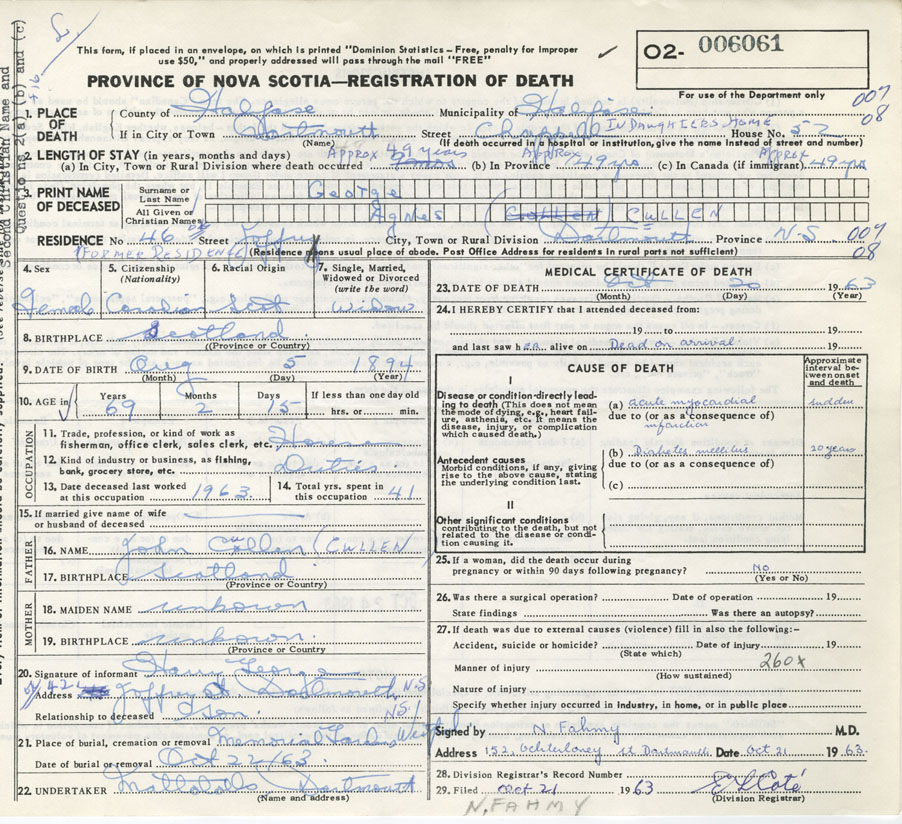 This form, if placed in an envelope, on which is printed "Dominion Statistics – Free, penalty for improper
use $50," and properly addressed will pass through the mail "FREE"
O2- 006061
PROVINCE OF NOVA SCOTIA—REGISTRATION OF DEATH
For use of the Department only
007
08
1. PLACE OF DEATH
County of Halifax Municipality of Halifax
If in City or Town Dartmouth Street Chappell IN DAUGHTERS HOME House No. 52
(Name) (If death occurred in a hospital or institution, give the name instead of street and number)
2. LENGTH OF STAY (in years, months and days) APPROX 49 years APPROX APPROX
(a) In City, Town or Rural Division where death occurred (b) In Province 49 yrs (c) In Canada (if immigrant) 49 yrs
3. PRINT NAME OF DECEASED
Surname or Last Name George
All Given or Christian Names Agnes (CULLEN
RESIDENCE No 46 Street Joffre City, Town or Rural Division Dartmouth Province N.S. 007
08
(FORMER RESIDENCE) (Residence means usual place of abode. Post Office Address for residents in rural parts not sufficient)
4. Sex 5. Citizenship (Nationality) 6. Racial Origin 7. Single, Married, Widowed or Divorced (write the word)
Female Canadian Scot Widow
8. BIRTHPLACE Scotland
(Province or Country)
9. DATE OF BIRTH Aug 5 1894
(Month) (Day) (Year)
10. AGE in Years Months Days If less than one day old
69 2 15 hrs. or min.
OCCUPATION
11. Trade, profession, or kind of work as fisherman, office clerk, sales clerk, etc. House
12. Kind of industry or business, as fishing, bank, grocery store, etc. Duties
13. Date deceased last worked at this occupation 1963 14. Total yrs. spent in this occupation 41
15. If married give name of wife or husband of deceased
FATHER
16. NAME John Collen (CULLEN
17. BIRTHPLACE Scotland
(Province or Country)
MOTHER
18. MAIDEN NAME unknown
19. BIRTHPLACE unknown
(Province or Country)
20. Signature of informant Harry George
Address 42 Joffre St Dartmouth N.S.
Relationship to deceased Son N.S.
21. Place of burial, cremation or removal Memorial
Date of burial or removal Oct 22/63
22. UNDERTAKER Dartmouth
(Name and address)
MEDICAL CERTIFICATE OF DEATH
23. DATE OF DEATH Oct 20 1963
(Month) (Day) (Year)
24. I HEREBY CERTIFY that I attended deceased from:
19 to 19
and last saw her alive on Dead on arrival 19
CAUSE OF DEATH
Approximate interval between onset and death
I
Disease or condition directly leading to death (This does not mean the mode of dying, e.g., heart failure, asthenia, etc. It means the disease, injury, or complication which caused death.)
(a) acute myocardial sudden
due to (or as a consequence of)
infarction
Antecedent causes
Morbid conditions, if any, giving rise to the above cause, stating the underlying condition last.
(b) Diabetes mellitus 20 years
due to (or as a consequence of)
(c)
II
Other significant conditions
contributing to the death, but not related to the disease or condition causing it.
25. If a woman, did the death occur during pregnancy or within 90 days following pregnancy? No
(Yes or No)
26. Was there a surgical operation? Date of operation 19
State findings Was there an autopsy?
27. If death was due to external causes (violence) fill in also the following:–
Accident, suicide or homicide? Date of injury 19
(State which)
Manner of injury 260X
(How sustained)
Nature of injury
Specify whether injury occurred in industry, in home, or in public place
Signed by N. Fahmy M.D.
Address 152 Ochterloney St Dartmouth Date Oct 21 1963
28. Division Registrar's Record Number
29. Filed Oct 21 1963
(Division Registrar)
N. FAHMY